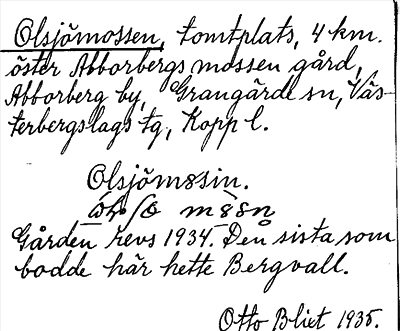 Olsjömossen, tomtplats, 4 km.
öster Abborbergs mossen gård,
Abborberg by, Grangärde sn, Väs-
terbergslags tg, Kopp l.
Olsjöm8sin.
m8̀8n
Gården revs 1934. Den sista som
bodde här hette Bergvall.
Otto Blixt 1935.